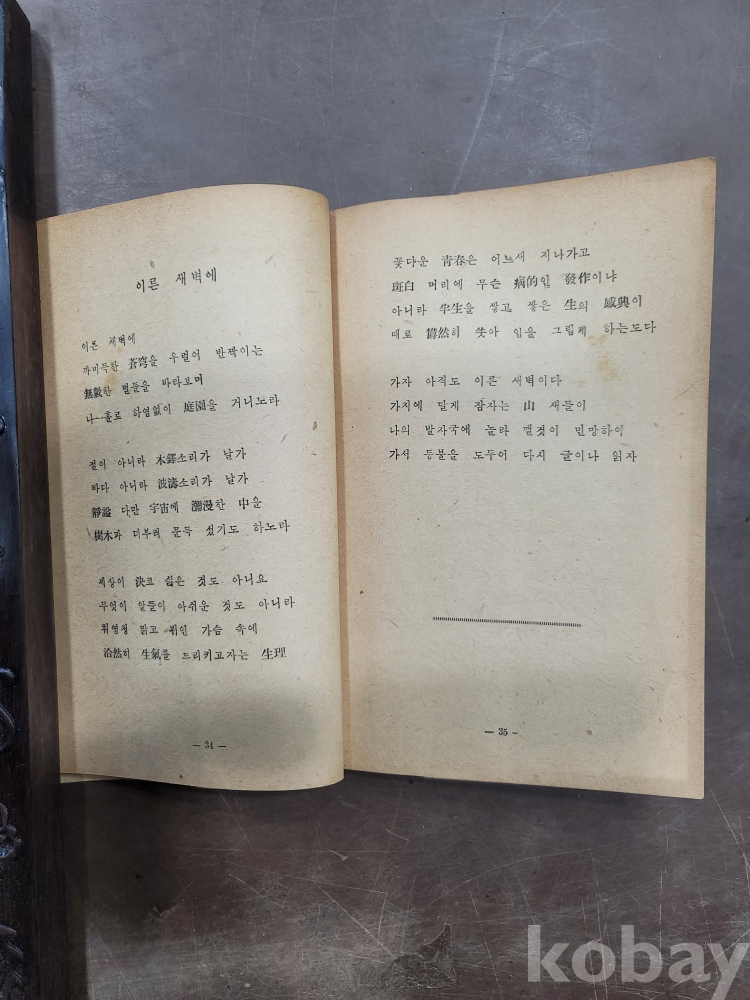 이른 새벽에
이른 새벽에
까미득한 蒼穹을 우럴어 반짝이는
無數한 별들을 바라보며
나—홀로 하염없이 庭園을 거니노라
절이 아니라 木鐸소리가 날가
바다 아니라 波濤소리가 날가
靜謐 다만 宇宙에 瀰漫한 中을
樹木과 더부러 문득 섰기도 하노라
세상이 決코 싫은 것도 아니요
무엇이 알뜰이 아쉬운 것도 아니라
휘영청 맑고 뷔인 가슴 속에
浩然히 生氣를 드리키고자는 生理
— 34 —
꽃다운 靑春은 어느새 지나가고
斑白 머리에 무슨 病的인 發作이냐
아니라 半生을 쌓고 쌓은 生의 感興이
때로 欝然히 솟아 임을 그립게 하는도다
가자 아직도 이른 새벽이다
가지에 달게 잠자는 山 새들이
나의 발자국에 놀라 깰것이 민망하이
가서 등불을 도두어 다시 글이나 읽자
— 35 —
kobay